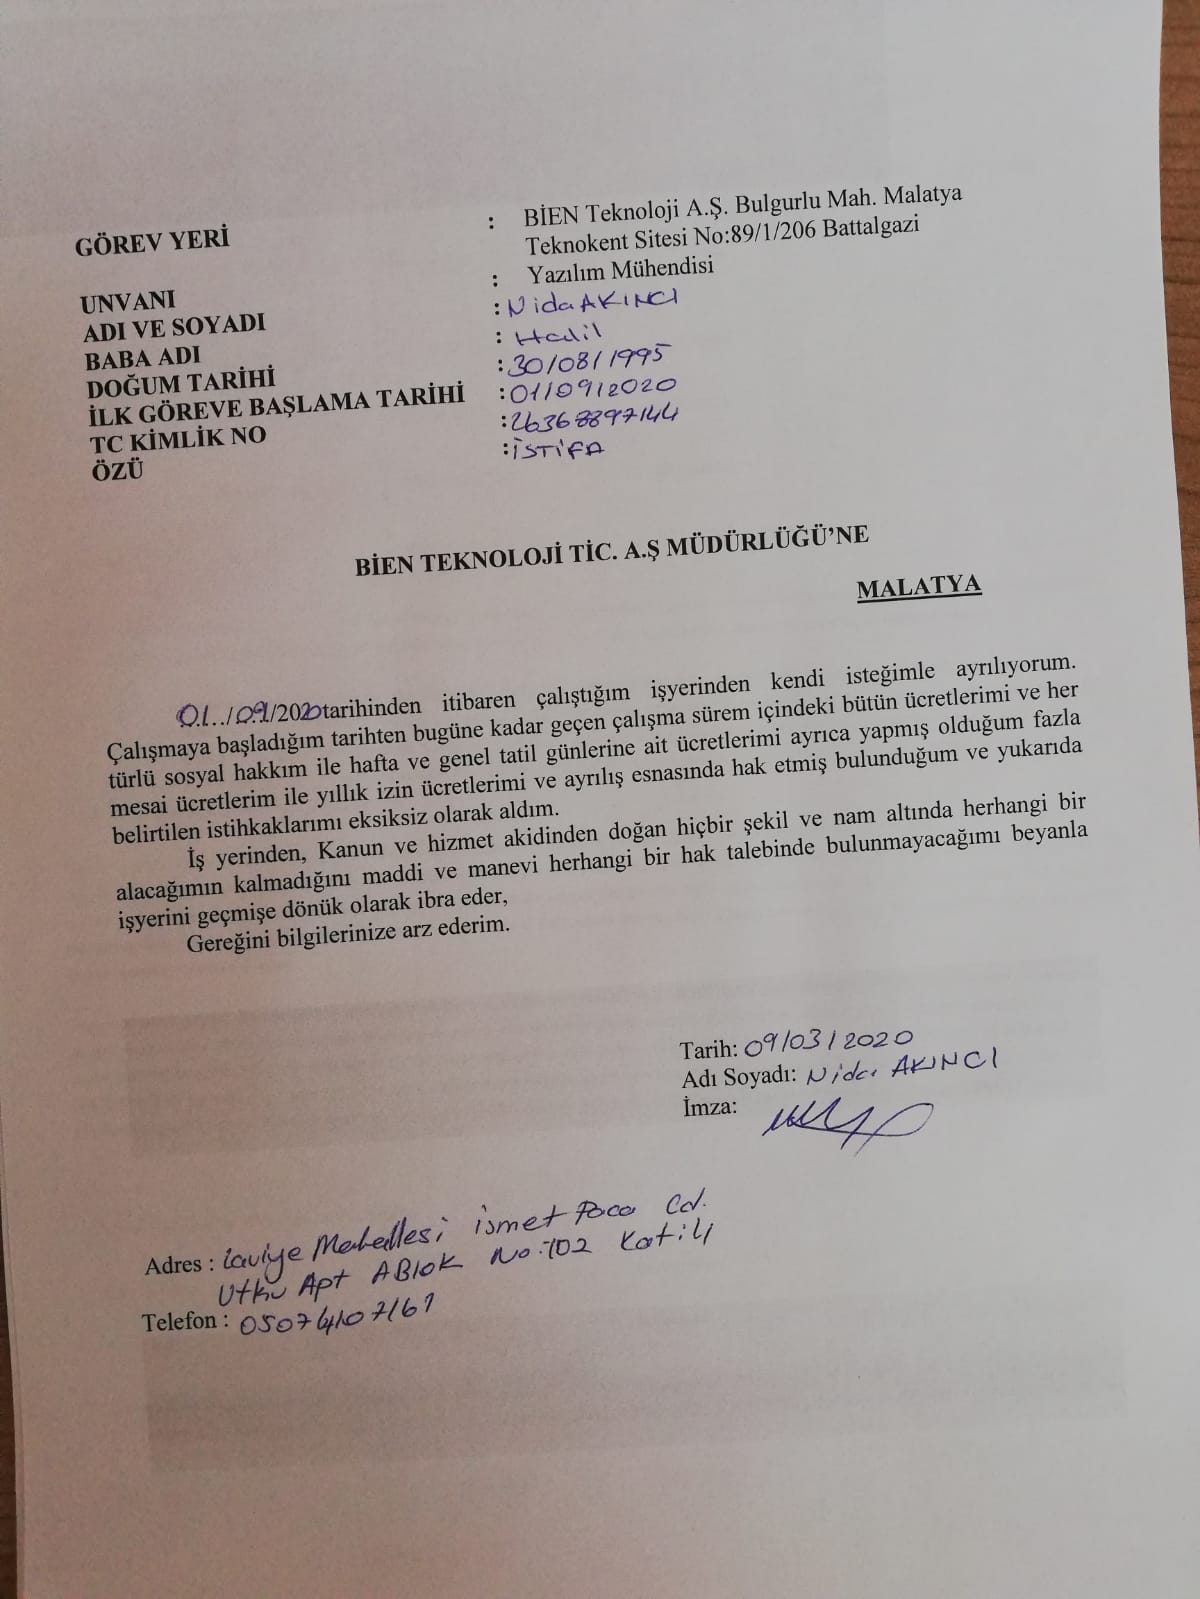 GÖREV YERİ : BİEN Teknoloji A.Ş. Bulgurlu Mah. Malatya
Teknokent Sitesi No:89/1/206 Battalgazi
UNVANI : Yazılım Mühendisi
ADI VE SOYADI : Nida AKINCI
BABA ADI : Halil
DOĞUM TARİHİ : 30/08/1995
İLK GÖREVE BAŞLAMA TARİHİ : 01/09/2020
TC KİMLİK NO : 26368897144
ÖZÜ : İSTİFA
BİEN TEKNOLOJİ TİC. A.Ş MÜDÜRLÜĞÜ'NE
MALATYA
01../09/2020 tarihinden itibaren çalıştığım işyerinden kendi isteğimle ayrılıyorum.
Çalışmaya başladığım tarihten bugüne kadar geçen çalışma sürem içindeki bütün ücretlerimi ve her
türlü sosyal hakkım ile hafta ve genel tatil günlerine ait ücretlerimi ayrıca yapmış olduğum fazla
mesai ücretlerim ile yıllık izin ücretlerimi ve ayrılış esnasında hak etmiş bulunduğum ve yukarıda
belirtilen istihkaklarımı eksiksiz olarak aldım.
İş yerinden, Kanun ve hizmet akidinden doğan hiçbir şekil ve nam altında herhangi bir
alacağımın kalmadığını maddi ve manevi herhangi bir hak talebinde bulunmayacağımı beyanla
işyerini geçmişe dönük olarak ibra eder,
Gereğini bilgilerinize arz ederim.
Tarih: 09/03/2020
Adı Soyadı: Nida AKINCI
İmza:
Adres : Mahallesi ismet Cd.
Utku Apt A Blok No:102 Kat:4
Telefon : 05074107161